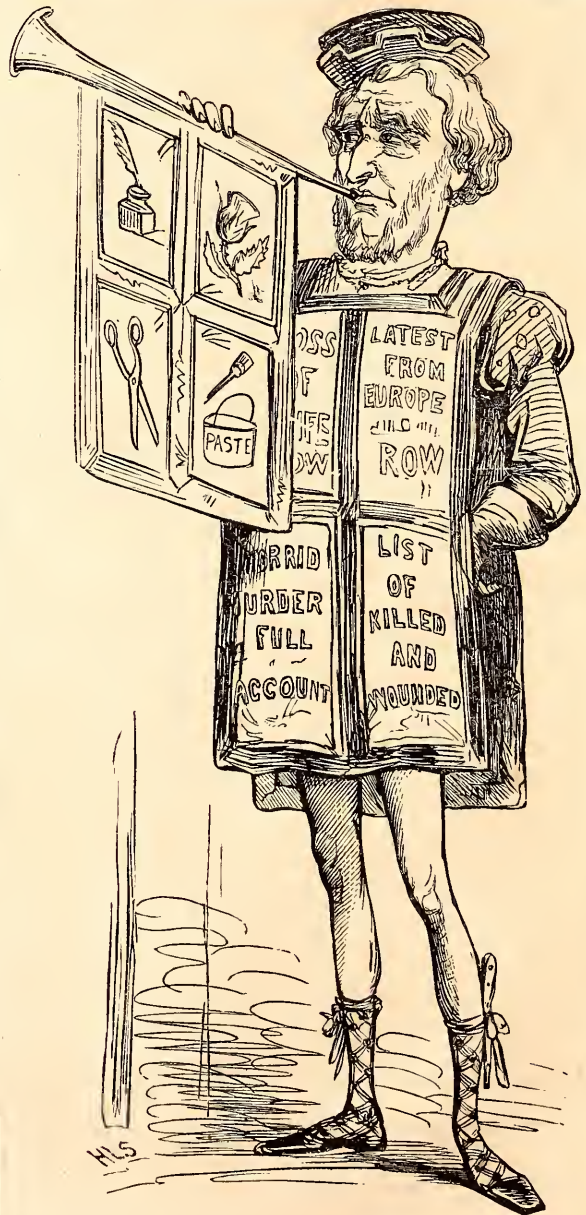 PASTE
OSS
OF
IFE
OW
LATEST
FROM
EUROPE
ROW
HORRID
URDER
FULL
ACCOUNT
LIST
OF
KILLED
AND
WOUNDED
HLS